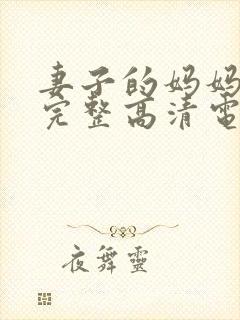 妻子的妈妈
完整高清电
夜舞靈